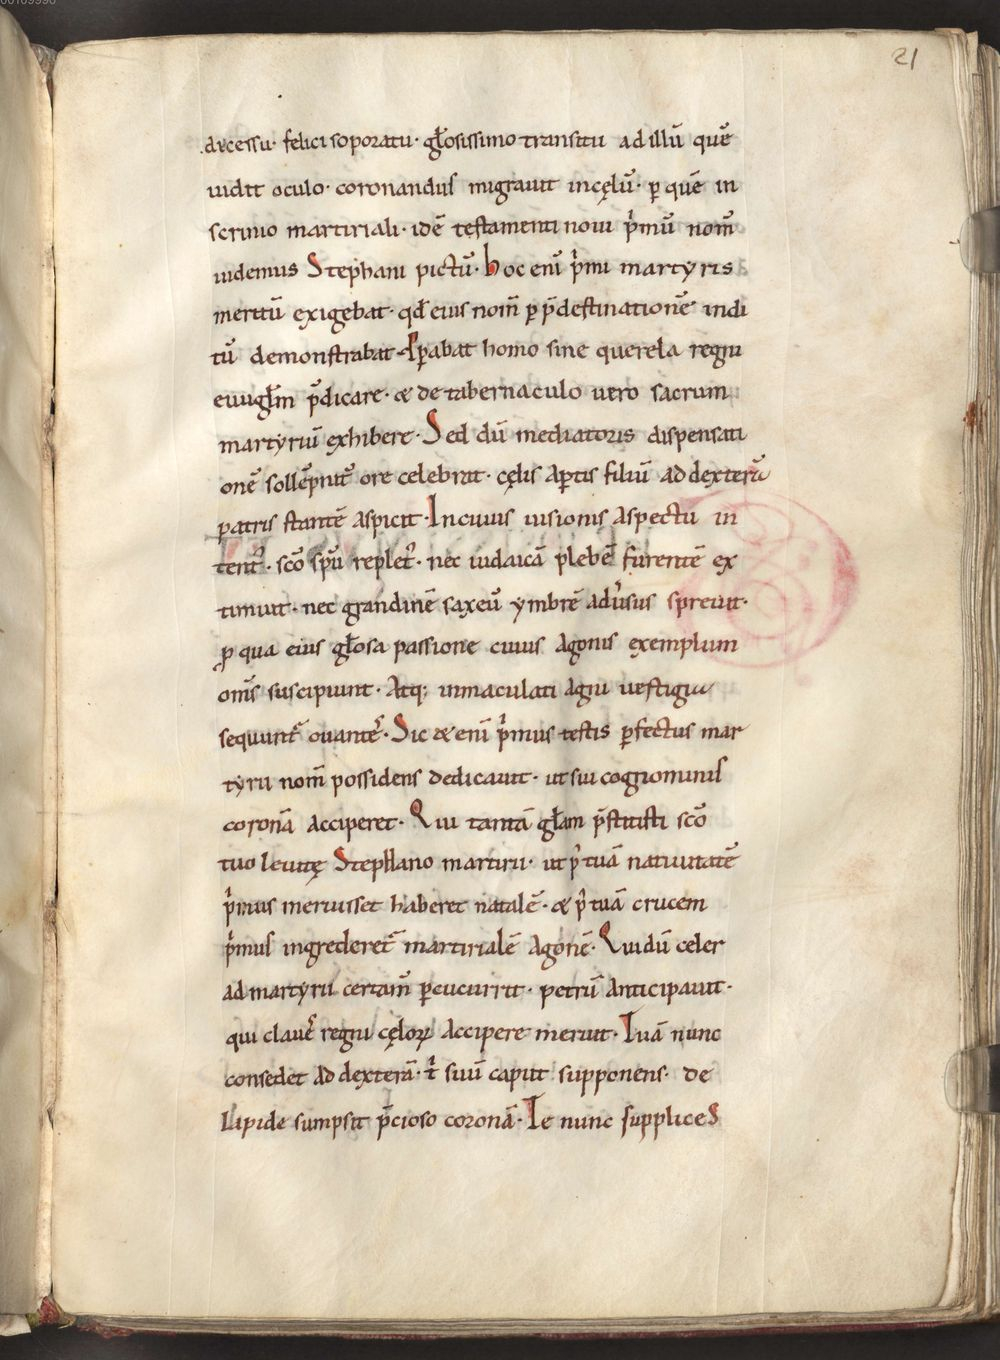 21
decessu· felici soporatu· gło̅sissimo transitu ad illū quē
uidit oculo· coronandus migrauit in cęlū· p̱ quē in
scrinio martiriali· idē testamenti noui p'mū nom̅
uidemus Stephani pictū· hoc eni̅ p'mi martyris
meritū exigebat· qđ eius nom̅ p̱ p̅destinationē indi
tū demonstrabat· P̱rabat homo sine querela regni
euuglm̅ p̅dicare· & de tabernaculo uero sacrum
martyriū exhibere· Sed dū mediatoris dispensati
onē sollēpnit̅ ore celebrat· cęlis ap̱tis filiū ad dexterā
patris stantē aspicit· In cuius uisionis aspectu in
tent'· sc̅o sp̅u replet'· nec iudaicā plebē furentē ex
timuit· nec grandinē saxeū ymbrē adu'sus spreuit·
ꝓ qua eius gło̅sa passione cuius agonis exemplum
om̅s suscipiunt· Atq; inmaculati agni uestigia
sequunt̅ ouantes̅· Sic & eni̅ p'mus testis p̱fectus mar
tyrii nom̅ possidens dedicauit· ut sui cognominis
coronā acciperet· Qui tantā głam p̅stitisti sc̅o
tuo leuitę Stephano martirii· ut p' tuā natiuitatē
p'mus meruisset haberet natalē· & p' tuā crucem
p'mus ingrederet̅ martirialē agonē· Qui dū celer
ad martyrii certam̅ p̱cucurrit· petrū anticipauit·
qui claues̅ regni cęloꝝ accipere meruit· Tuā nunc
consedet ad dexterā· t' suū caput supponens· de
Lapide sumpsit p̅cioso coronā· Te nunc suppliceS